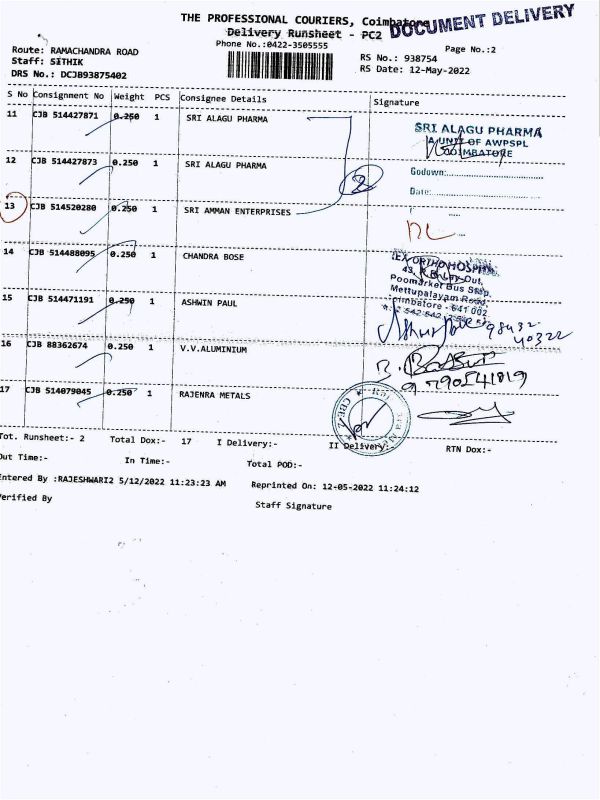 THE PROFESSIONAL COURIERS, Coimbatore
DOCUMENT DELIVERY
Delivery Runsheet - PC2
Phone No.:0422-3505555
Page No.:2
Route: RAMACHANDRA ROAD
RS No.: 938754
Staff: SITHIK
RS Date: 12-May-2022
DRS No.: DCJB93875402
S No Consignment No Weight PCS Consignee Details Signature
11 CJB 514427871 0.250 1 SRI ALAGU PHARMA
SRI ALAGU PHARMA
A UNIT OF AWPSPL
COIMBATORE
12 CJB 514427873 0.250 1 SRI ALAGU PHARMA
Godown:
Date:
2
13 CJB 514520280 0.250 1 SRI AMMAN ENTERPRISES
14 CJB 514488095 0.250 1 CHANDRA BOSE
ORTHO HOSPITAL
Poomarket Bus Stop,
Mettupalayam Road,
Coimbatore - 641 002
15 CJB 514471191 0.250 1 ASHWIN PAUL
98432
40322
16 CJB 88362674 0.250 1 V.V.ALUMINIUM
9790541819
17 CJB 514079045 0.250 1 RAJENRA METALS
CBE-2
Tot. Runsheet:- 2 Total Dox:- 17 I Delivery:- II Delivery:- RTN Dox:-
Out Time:- In Time:- Total POD:-
Entered By :RAJESHWARI2 5/12/2022 11:23:23 AM Reprinted On: 12-05-2022 11:24:12
Verified By Staff Signature